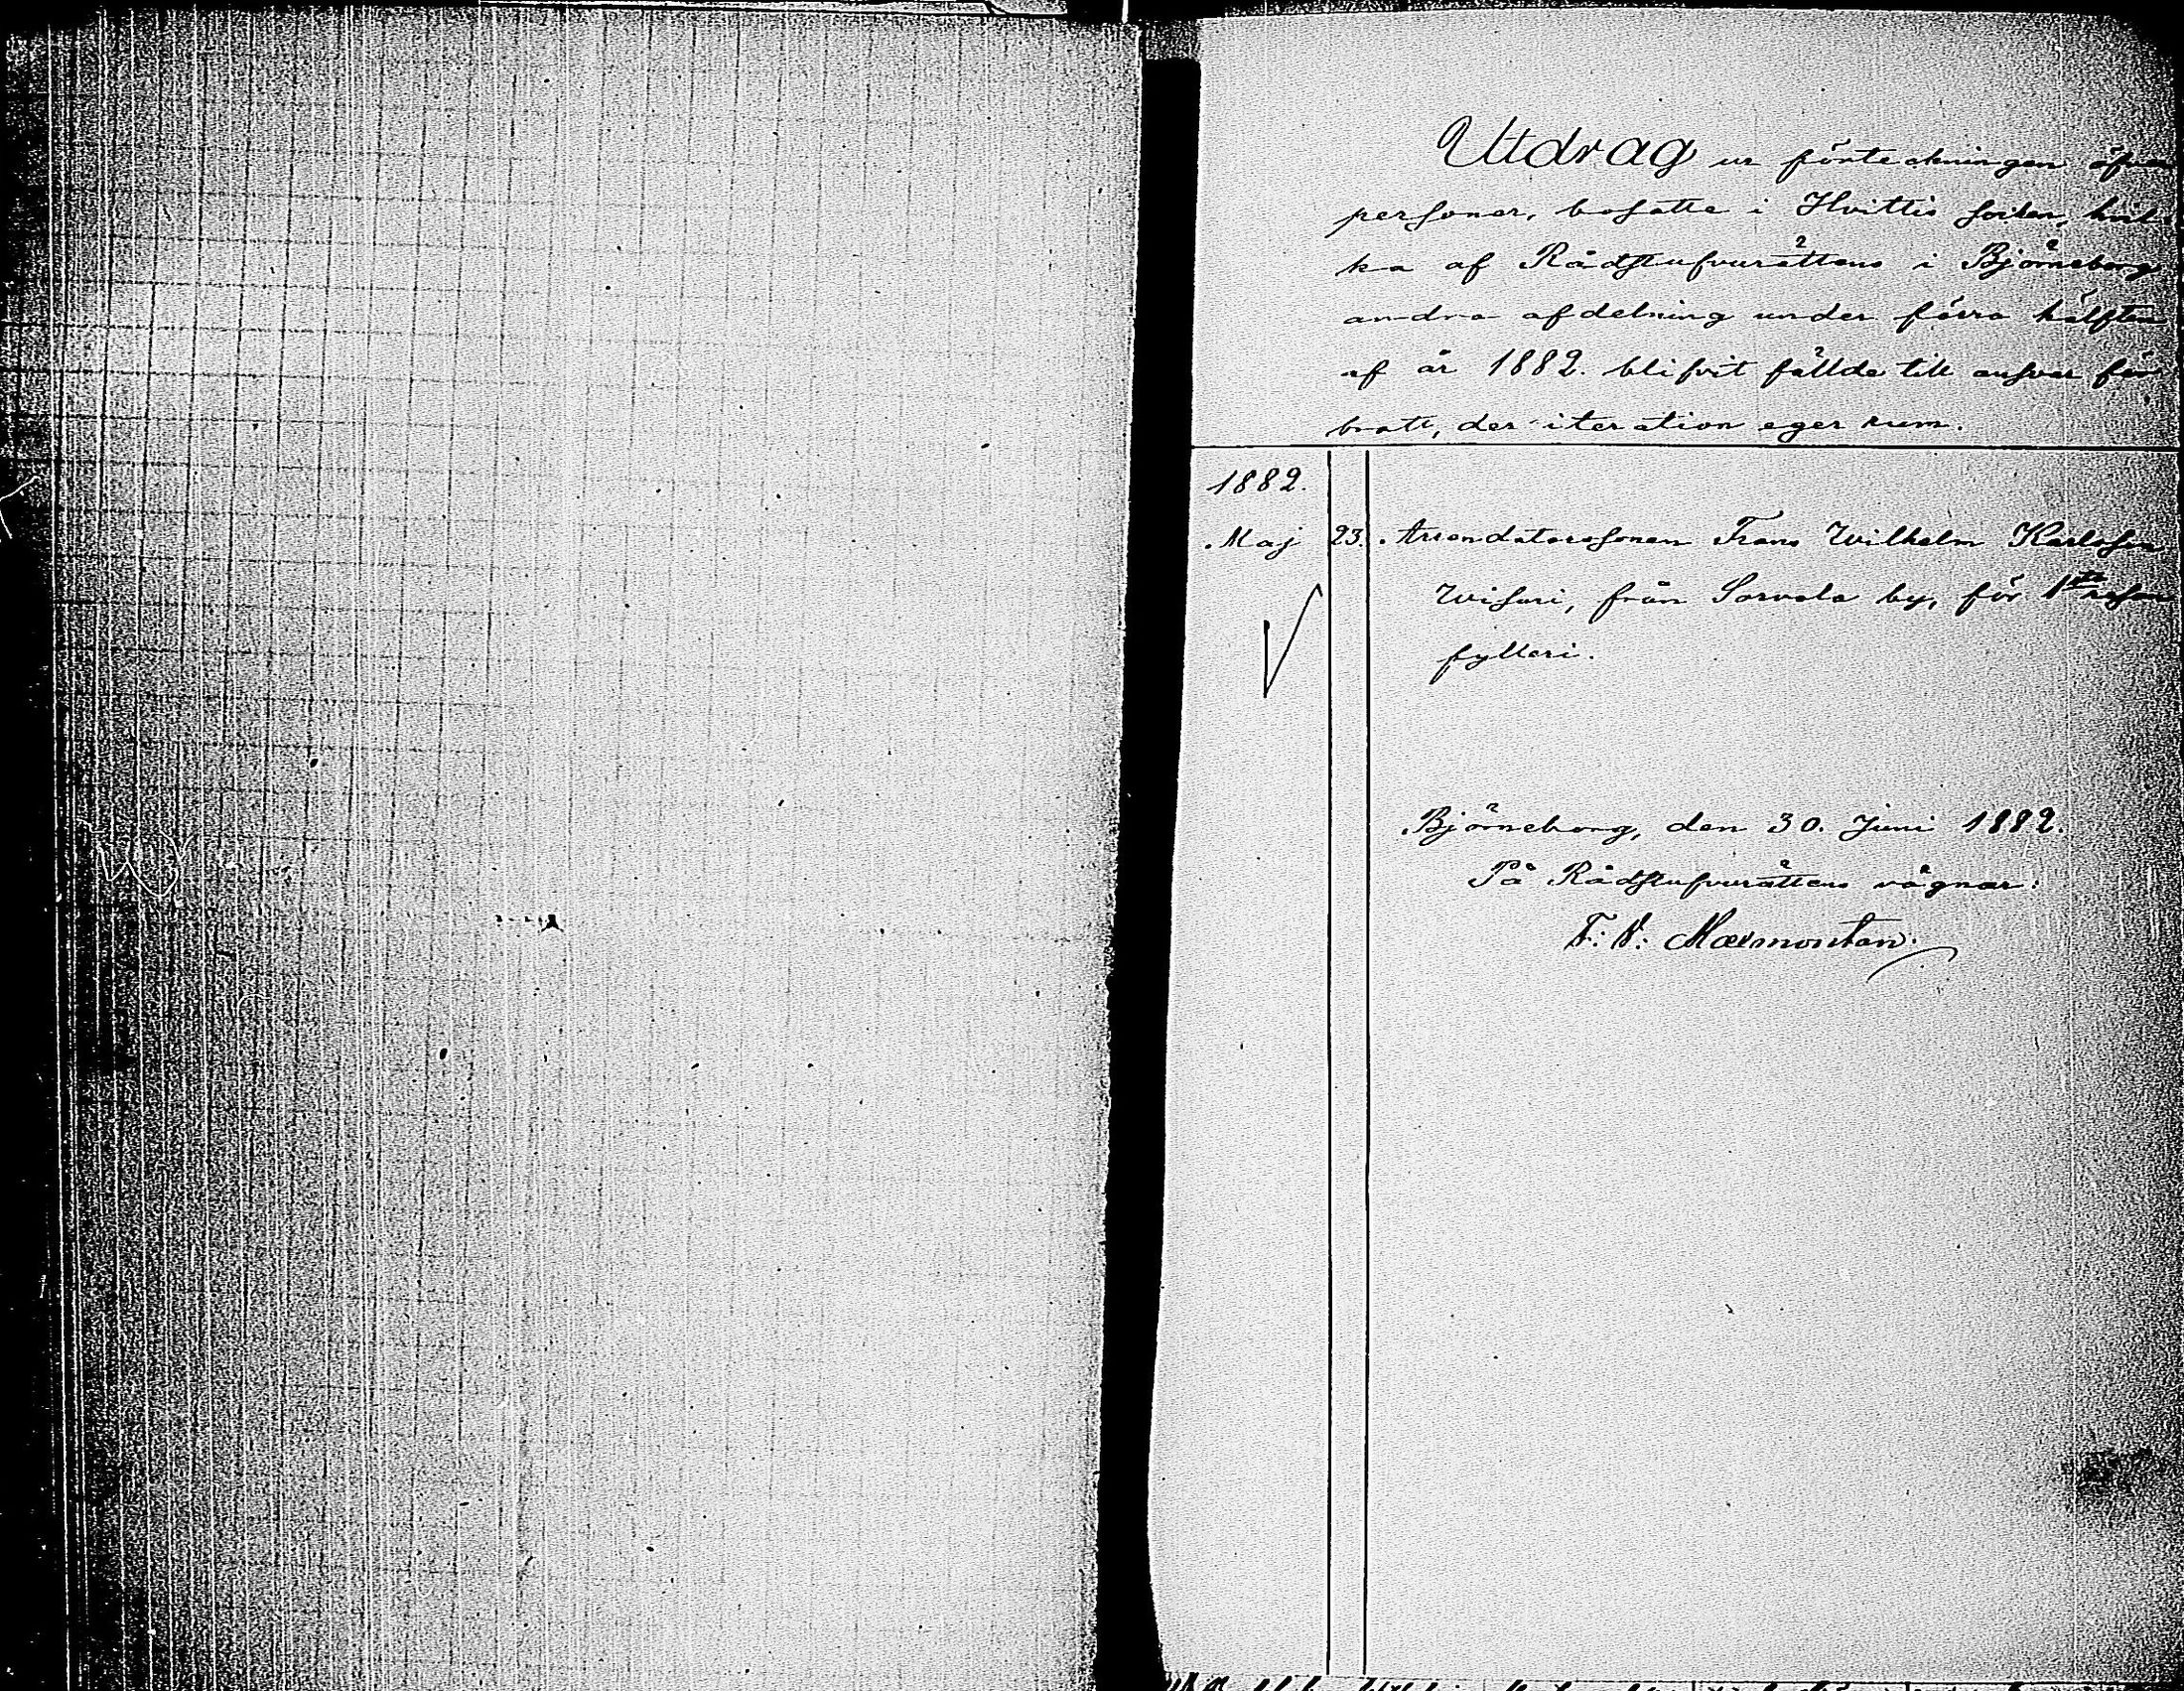 Utdrag ur förteckningen öfver
personer, bosatte i Hvittis socken, hvil-
ka af Rådstufvurättens i Björneborg
andra afdelning under förra hälften
af år 1882. blifvit fällde till ansvar för
brott, der iteration eger rum.
1882.
Maj 23. Arrendatorssonen Frans Wilhelm Karlsson
Wisuri, från Sarvala by, för 1sta resan
fylleri.
Björneborg, den 30. Juni 1882.
På Rådstufvurättens vägnar:
F. V. Marmontan.